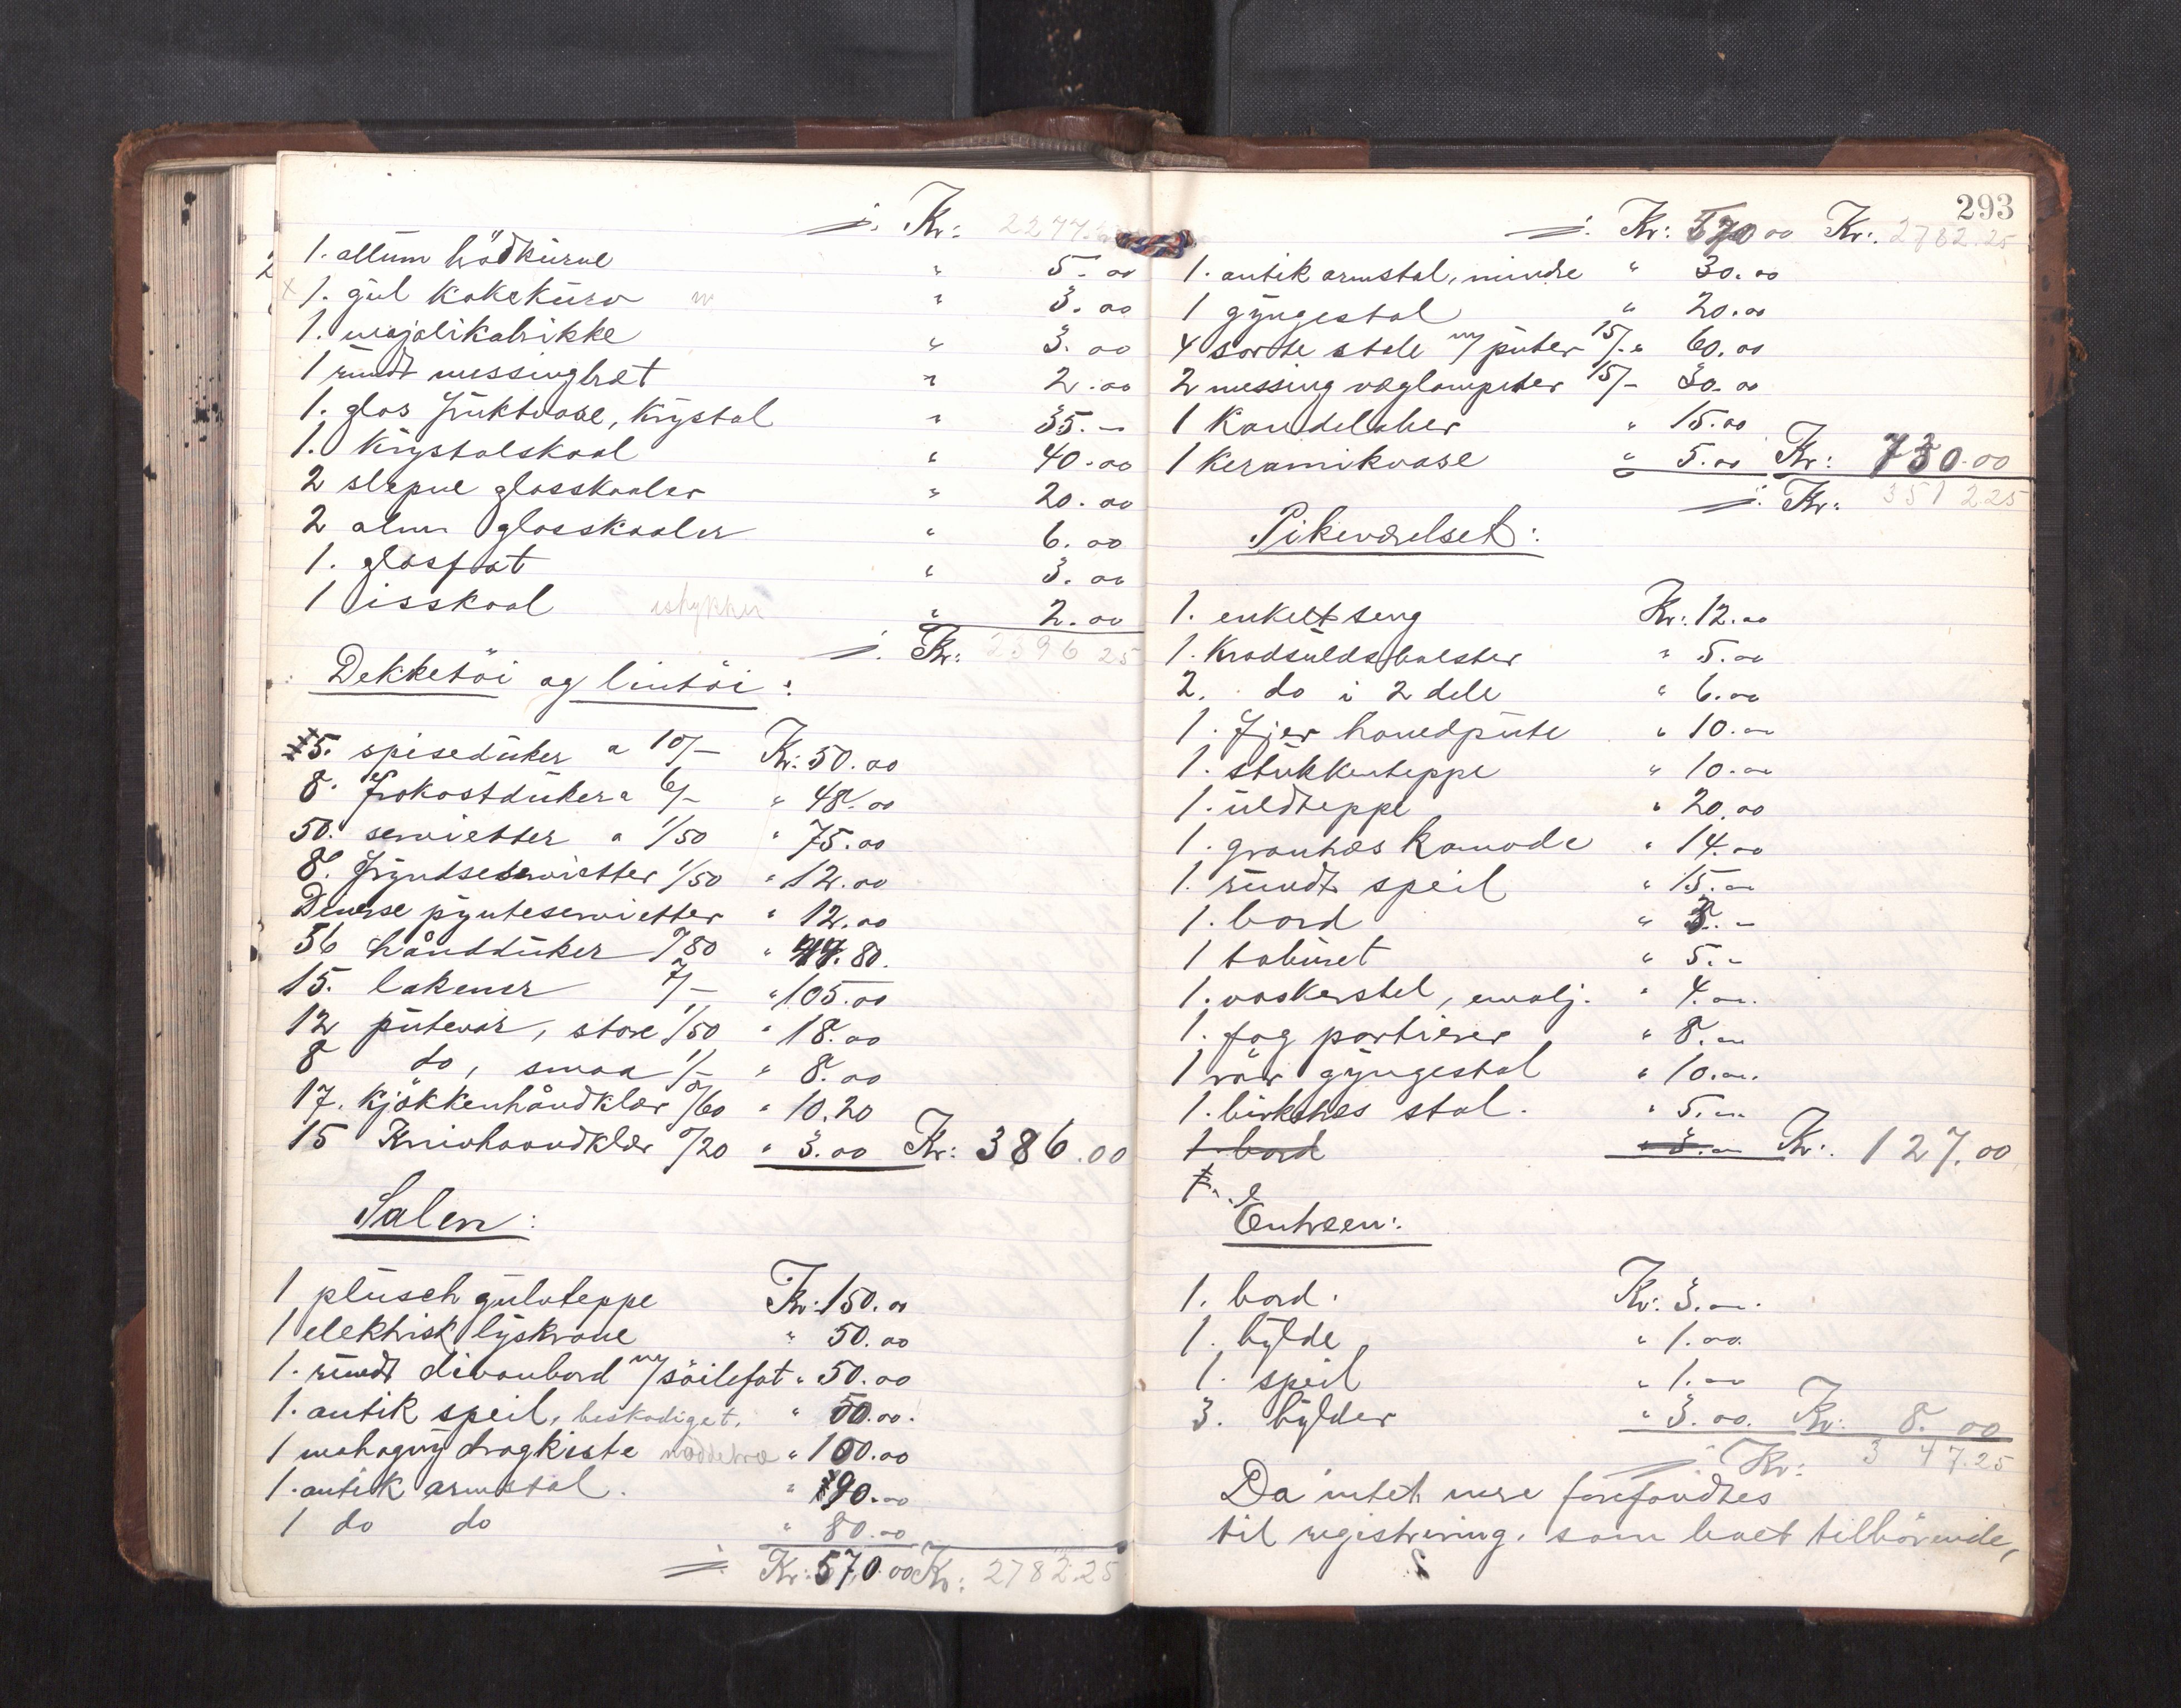 Kr: 2277.
1. allum brödkurve " 5.00
1. gul kakekurv " 3.00
1. majolikabrikke " 3.00
1 rundt messingbræt " 2.00
1. glas fruktvase, krystal " 35.–
1. krystalskaal " 40.00
2 slepne glasskaaler " 20.00
2 alm glasskaaler " 6.00
1. glasfat " 3.00
1 isskaal " 2.00
Kr: 2396 25
Dekketöi og lintöi:
5. spiseduker a 10/– Kr: 50.00
8. Frokostduker a 6/– " 48.00
50. servietter a 1/50 " 75.00
8. Fryndseservietter 1/50 " 12.00
Diverse pynteservietter " 12.00
56 hånddüker /80 " 44.80
15. lakener 7/– " 105.00
12 putevar, store 1/50 " 18.00
8 do, smaa 1/– " 8.00
17. kjökkenhåndklær 0/60 " 10.20
15 Knivhaandklær 0/20 " 3.00 Kr: 386.00
Salen:
1 plusch gulvteppe Kr: 150.00
1 elektrisk lyskrone " 50.00
1. rundt divanbord m/söilefot " 50.00
1. antik speil, beskadiget. " 50.00.
1 mahogny dragkiste nøddetræ " 100.00
1. antik armstol. " 90.00
1 do do " 80.00
Kr: 570.00 Kr: 2782.25
293
Kr: 570 00 Kr: 2782.25
1. antik armstol, mindre " 30.00
1 gyngestol " 20.00
4 sorte stole m/ puter 15/– " 60.00
2 messing væglampetter 15/– 30.00
1 Kandelaber " 15.00
1 Keramikvase " 5.00 Kr: 730.00
Kr: 351 2.25
Pikeværelset:
1. enkelt seng Kr: 12.00
1. Kradsuldsbolster " 5.00
2. do i 2 dele " 6.00
1. fjer hovedpute " 10.00
1. stukkenteppe " 10.00
1. uldteppe " 20.00
1. granhæs Komode " 14.00
1. rundt speil " 15.00
1. bord " 3.–
1 taburet " 5.–
1. vaskerstel, emalj. " 4.00.
1. fag portierer " 8.00
1 rör gyngestol " 10.00.
1. birketræs stol. " 5.00
1 bord " 3.00 Kr: 127.00
Entreen:
1. bord. Kr: 3.00.
1. hylde " 1.00.
1. speil " 1.00
3. hylder " 3.00. Kr: 8.00
Kr: 3 47.25
Da intet mere forefandtes
til registrering, som boet tilhörende,